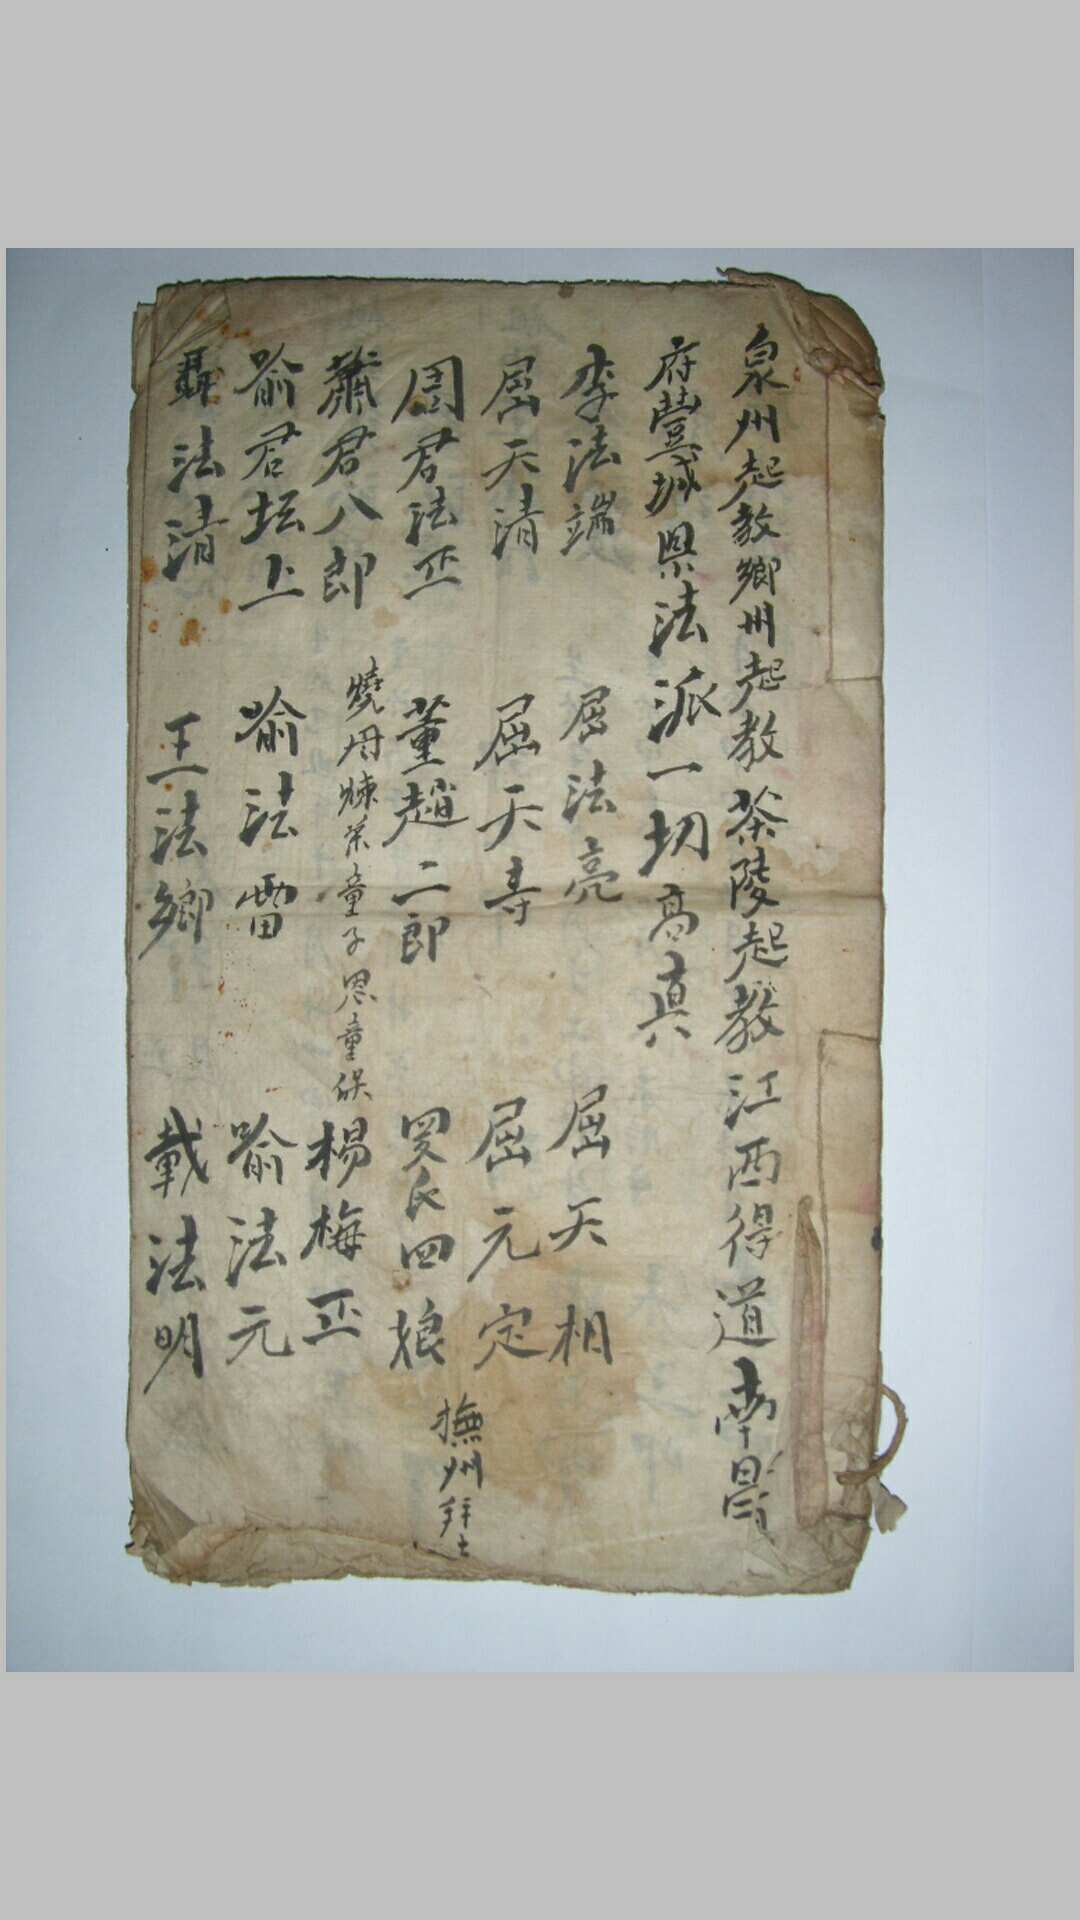 泉州起教鄉州起教茶陵起教江西得道南昌
府豐城県法派一切高真
李法端 屈法亮 屈天相
屈天清 屈天寿 屈元定
周君法正 董趙二郎 罗氏四娘
撫州拜士
蕭君八郎 楊梅正
燒丹煉茶童子思童保
喻君坛上 喻法雷 喻法元
聶法清 王法鄉 戴法明